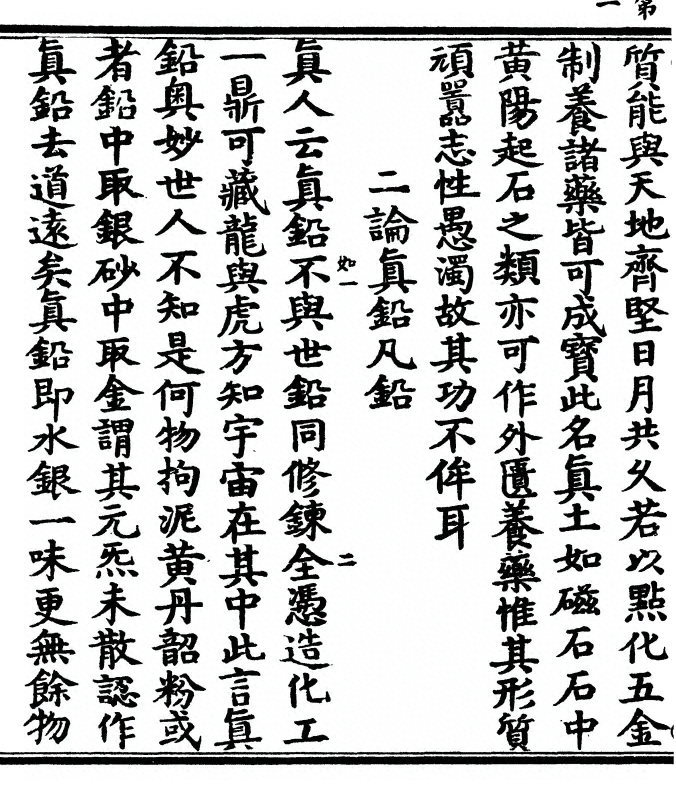 第一
質能與天地齊堅日月共久若以點化五金
制養諸藥皆可成寶此名眞土如磁石石中
黃陽起石之類亦可作外匱養藥惟其形質
頑嚚志性愚濁故其功不侔耳
二論眞鉛凡鉛
如一 二
眞人云眞鉛不與世鉛同修鍊全憑造化工
一鼎可藏龍與虎方知宇宙在其中此言眞
鉛奥妙世人不知是何物拘泥黃丹韶粉或
者鉛中取銀砂中取金謂其元炁未散認作
眞鉛去道遠矣眞鉛即水銀一味更無餘物